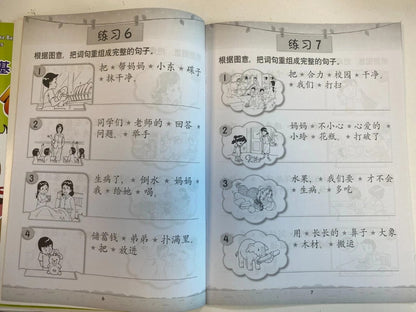 练习6
根据图意，把词句重组成完整的句子。
1
把 ★ 帮妈妈 ★ 小东 ★ 碟子
★ 抹干净。
2
同学们 ★ 老师的 ★ 回答 ★
问题。 ★ 举手
3
生病了， ★ 倒水 ★ 妈妈 ★
我 ★ 给她 ★ 喝。
4
储蓄钱 ★ 弟弟 ★ 扑满里。
★ 把 ★ 放进
6
练习7
根据图意，把词句重组成完整的句子。
1
把 ★ 合力 ★ 校园 ★ 干净。
★ 我们 ★ 打扫
2
妈妈 ★ 不小心 ★ 心爱的
★ 小玲 ★ 花瓶。 ★ 打破了
3
水果， ★ 我们要 ★ 才不会
★ 生病。 ★ 多吃
4
用 ★ 长长的 ★ 鼻子 ★ 大象
★ 木材。 ★ 搬运
7